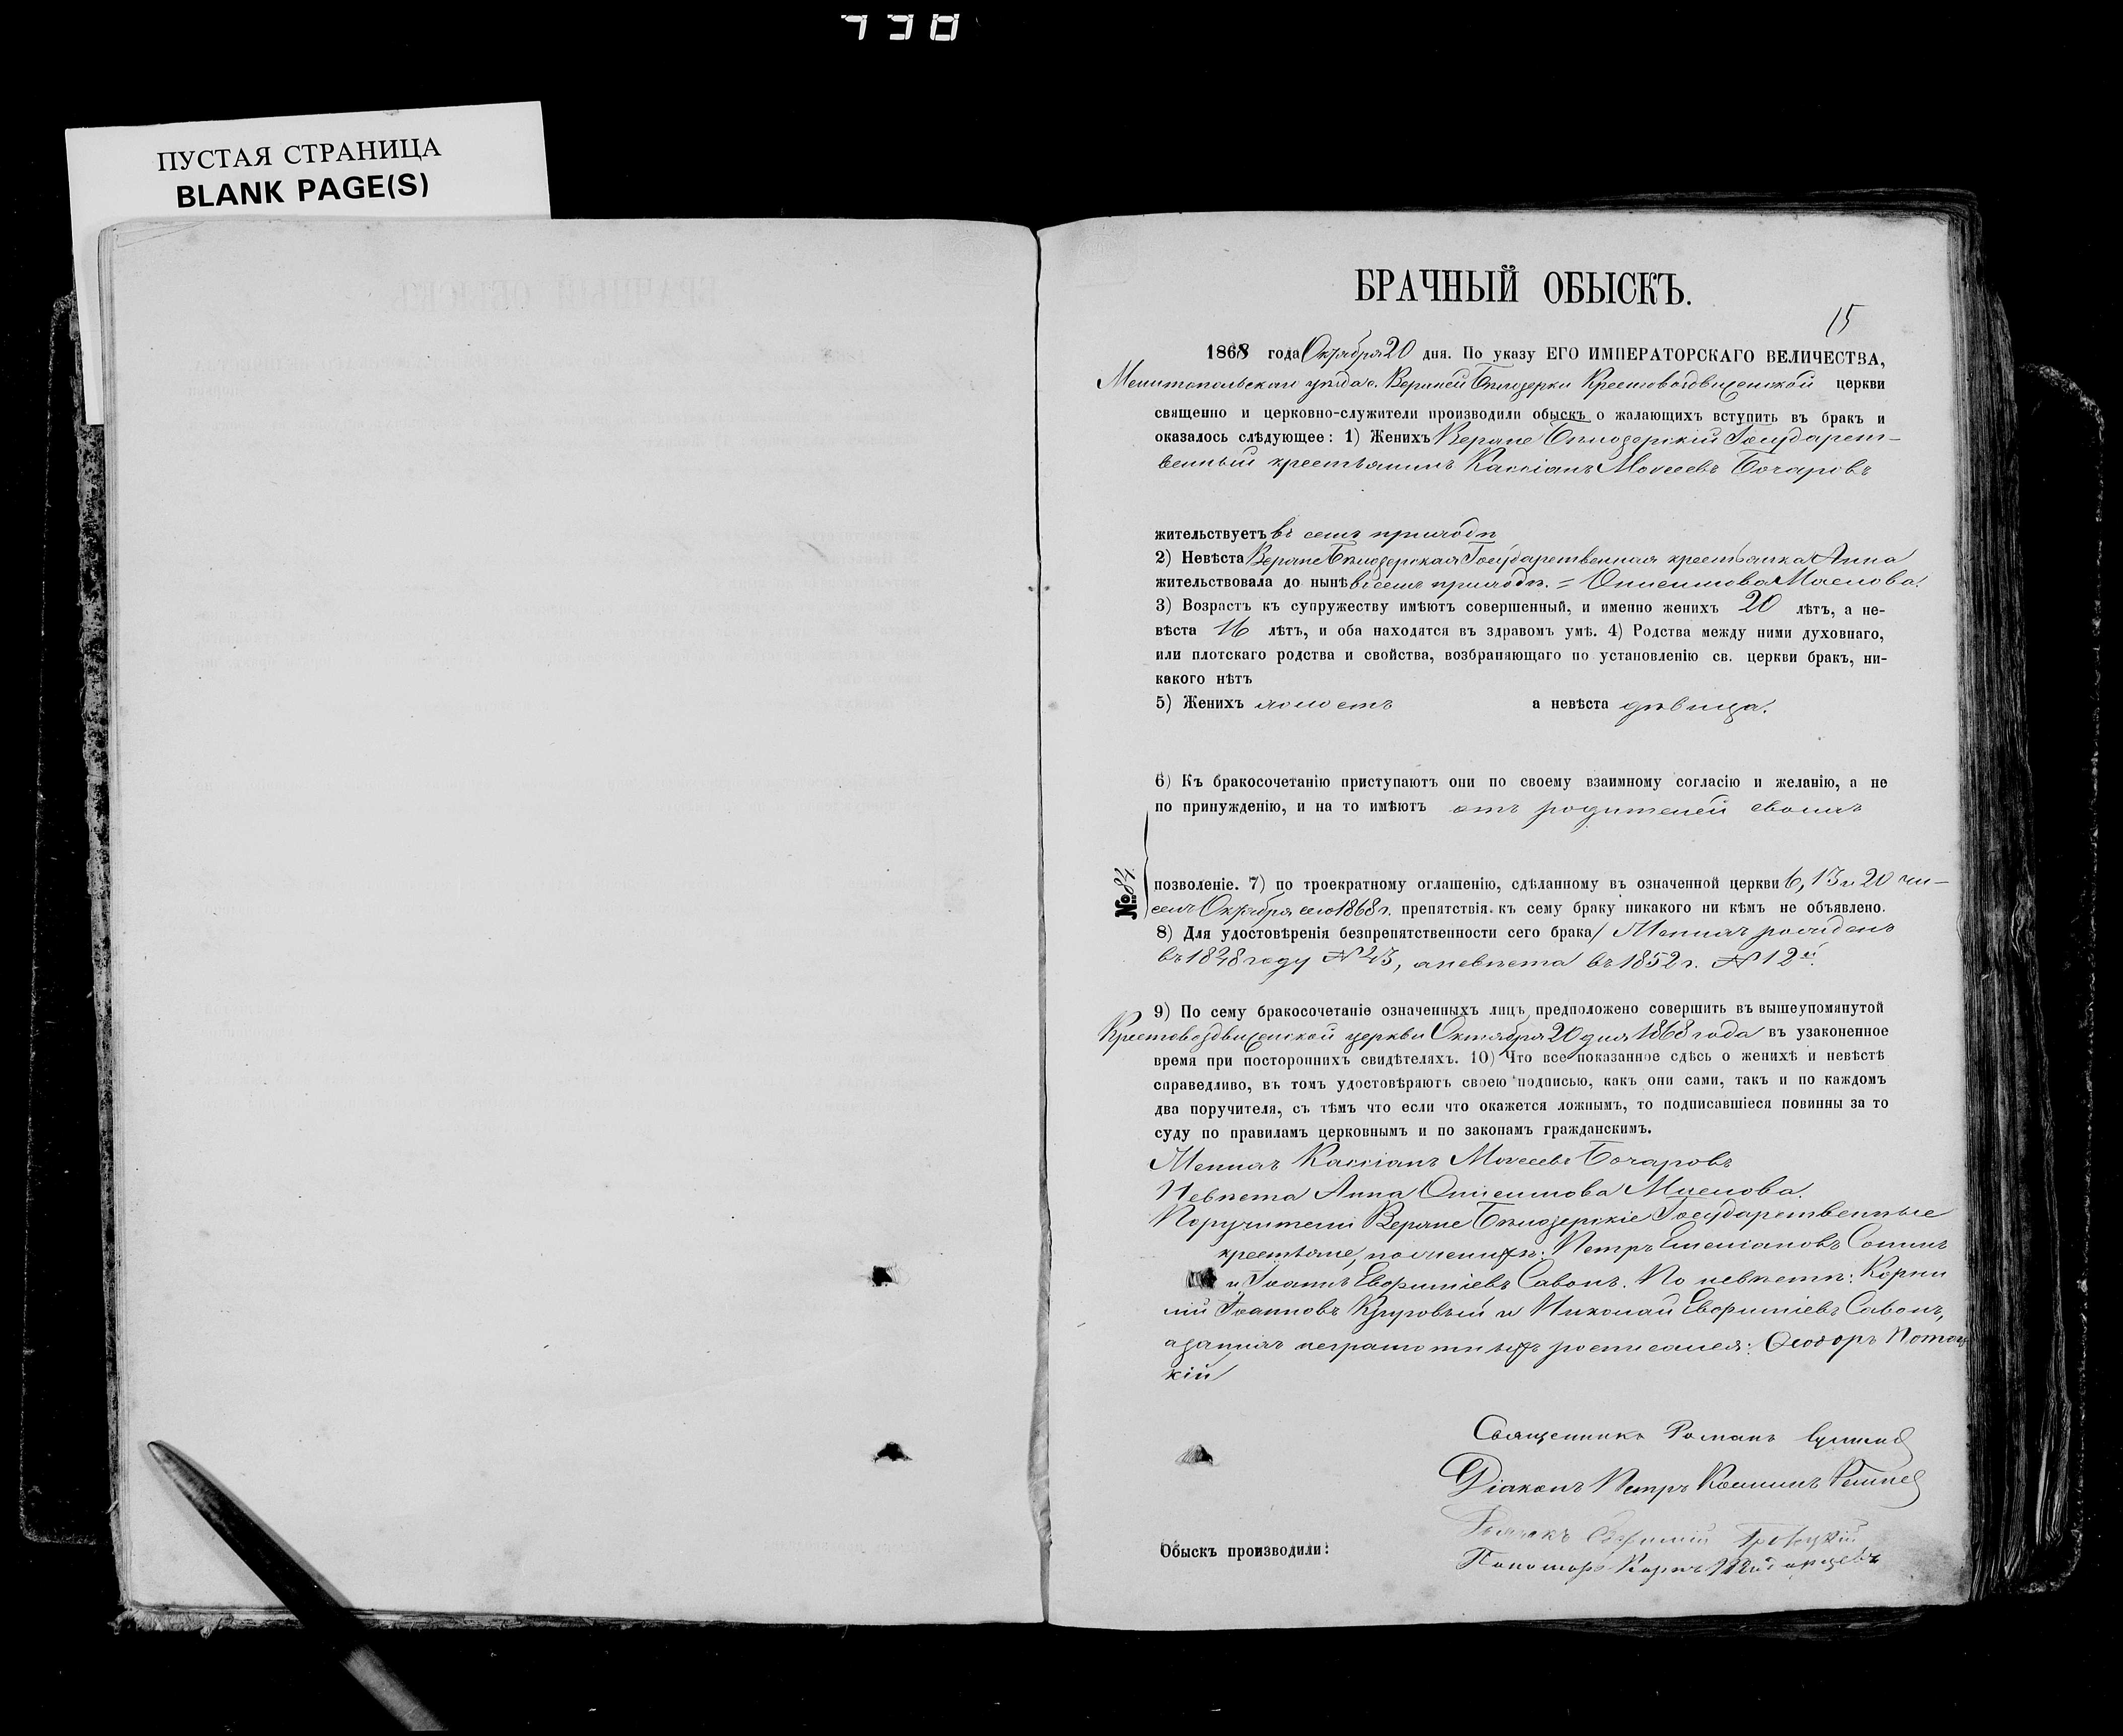 738
ПУСТАЯ СТРАНИЦА
BLANK PAGE(S)
БРАЧНЫЙ ОБЫСКЪ.
15
1868 года Октября 20 дня. По указу ЕГО ИМПЕРАТОРСКАГО ВЕЛИЧЕСТВА,
Мелитопольскаго уѣзда с. Верхней Бѣлозерки Крестовоздвиженской церкви
священно и церковно-служители производили обыскъ о жалающихъ вступить въ бракъ и
оказалось слѣдующее: 1) Женихъ Верхне Бѣлозерскій Государст-
венный крестьянинъ Кассіанъ Моѵсеевъ Бочаровъ
жительствуетъ въ семъ приходѣ
2) Невѣста Верхне Бѣлозерская Государственная крестьянка Анна
жительствовала до нынѣ въ семъ приходѣ. = Онисимова Маслова.
3) Возрастъ къ супружеству имѣютъ совершенный, и именно женихъ 20 лѣтъ, а не-
вѣста 16 лѣтъ, и оба находятся въ здравомъ умѣ. 4) Родства между ними духовнаго,
или плотскаго родства и свойства, возбраняющаго по установленію св. церкви бракъ, ни-
какого нѣтъ
5) Женихъ холостъ а невѣста дѣвица.
6) Къ бракосочетанію приступаютъ они по своему взаимному согласію и желанію, а не
по принужденію, и на то имѣютъ отъ родителей своихъ
№ 84
позволеніе. 7) по троекратному оглашенію, сдѣланному въ означенной церкви 6, 13 и 20 чи-
селъ Октября сего 1868 г. препятствія къ сему браку никакого ни кѣмъ не объявлено.
8) Для удостовѣренія безпрепятственности сего брака Женихъ рожденъ
въ 1848 году № 43, а невѣста въ 1852 г. № 12й.
9) По сему бракосочетаніе означенныхъ лицъ предположено совершить въ вышеупомянутой
Крестовоздвиженской церкви Октября 20 дня 1868 года въ узаконенное
время при постороннихъ свидѣтеляхъ. 10) Что все показанное сдѣсь о женихѣ и невѣстѣ
справедливо, въ томъ удостовѣряютъ своею подписью, какъ они сами, такъ и по каждомъ
два поручителя, съ тѣмъ что если что окажется ложнымъ, то подписавшіеся повинны за то
суду по правиламъ церковнымъ и по законамъ гражданскимъ.
Женихъ Кассіанъ Моѵсеевъ Бочаровъ
Невѣста Анна Онисимова Маслова.
Поручители Верхне Бѣлозерскіе Государственные
крестьяне, по женихѣ: Петръ Емеліановъ Сопинъ
и Іоаннъ Евфиміевъ Савонъ. По невѣстѣ: Корни
лій Іоанновъ и Николай Евфиміевъ Савонъ,
а за нихъ неграмотныхъ росписался: Ѳеодоръ Потоц
кій
Священникъ Романъ
Діаконъ Петръ Косминъ
Евфимій
Обыскъ производили:
Пономарь Карпъ